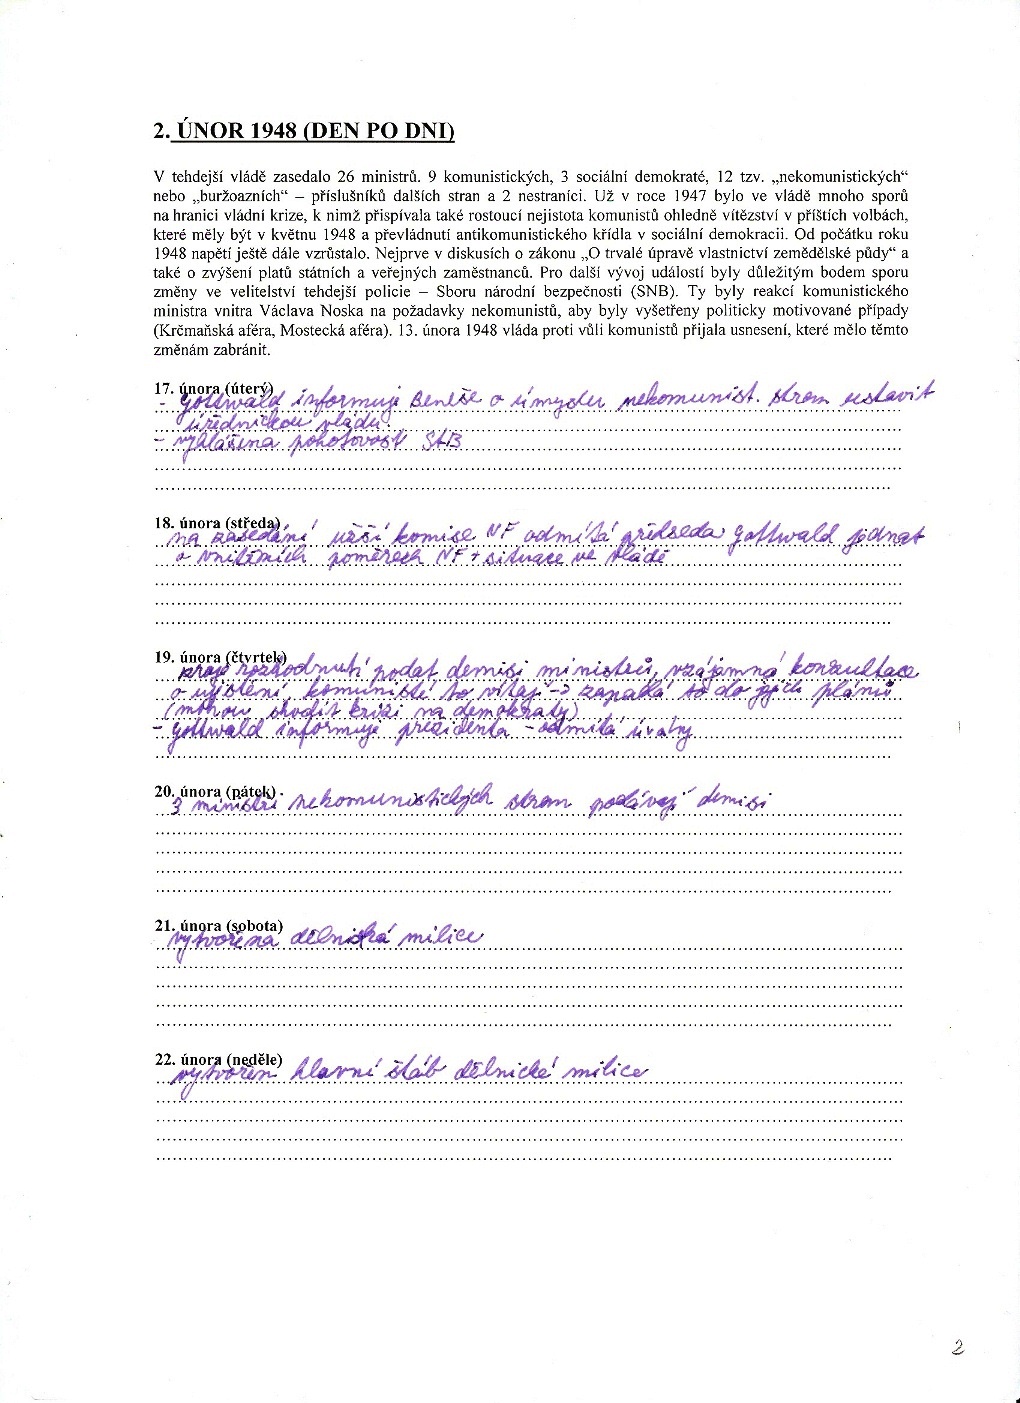 2. ÚNOR 1948 (DEN PO DNI)
V tehdejší vládě zasedalo 26 ministrů. 9 komunistických, 3 sociální demokraté, 12 tzv. „nekomunistických“
nebo „buržoazních“ – příslušníků dalších stran a 2 nestraníci. Už v roce 1947 bylo ve vládě mnoho sporů
na hranici vládní krize, k nimž přispívala také rostoucí nejistota komunistů ohledně vítězství v příštích volbách,
které měly být v květnu 1948 a převládnutí antikomunistického křídla v sociální demokracii. Od počátku roku
1948 napětí ještě dále vzrůstalo. Nejprve v diskusích o zákonu „O trvalé úpravě vlastnictví zemědělské půdy“ a
také o zvýšení platů státních a veřejných zaměstnanců. Pro další vývoj událostí byly důležitým bodem sporu
změny ve velitelství tehdejší policie – Sboru národní bezpečnosti (SNB). Ty byly reakcí komunistického
ministra vnitra Václava Noska na požadavky nekomunistů, aby byly vyšetřeny politicky motivované případy
(Krčmaňská aféra, Mostecká aféra). 13. února 1948 vláda proti vůli komunistů přijala usnesení, které mělo těmto
změnám zabránit.
17. února (úterý)
- Gottwald informuje Beneše o úmyslu nekomunist. stran ustavit
úřednickou vládu
- vyhlášena pohotovost StB
18. února (středa)
na zasedání užší komise NF odmítá předseda Gottwald jednat
o vnitřních poměrech NF + situace ve vládě
19. února (čtvrtek)
rozhodnutí podat demisi ministrů, vzájemná konzultace
o ujištění, komunisté to vítají -> zapadá to do jejich plánů
(mohou shodit krizi na demokraty)
- Gottwald informuje prezidenta - odmítá úvahy
20. února (pátek)
3 ministři nekomunistických stran podávají demisi
21. února (sobota)
vytvořena dělnická milice
22. února (neděle)
vytvořen hlavní štáb dělnické milice
2